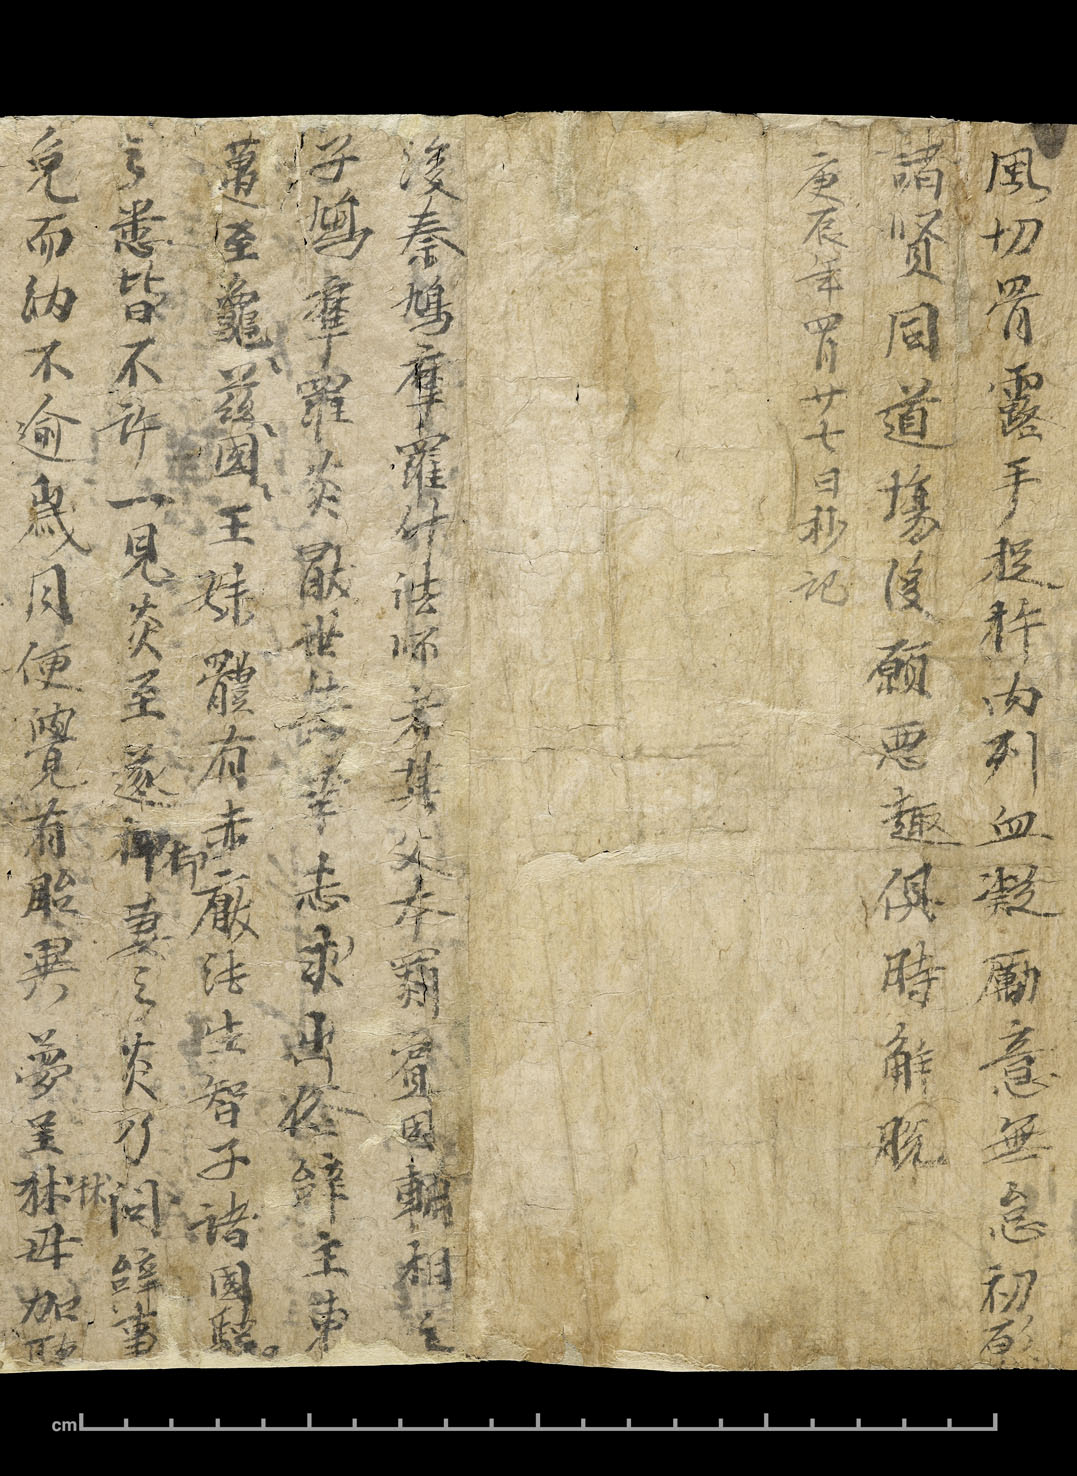 風切骨露手捉杵肉列血凝勵意無怠初
諸賢同道塲後願惡趣俱時解脫
庚辰年四月廿七日抄記
後秦鳩摩羅什法師者其父本罽賔國輔相之
子鳩摩羅炎猒世荣華志求出俗辞主東
邁至龜兹國王妹體有赤黡法生智子諸國騁
之悉皆不許一見炎至遂御妻之炎乃問辞事
免而納不逾歲月便覺有胎異夢呈祥母加聡